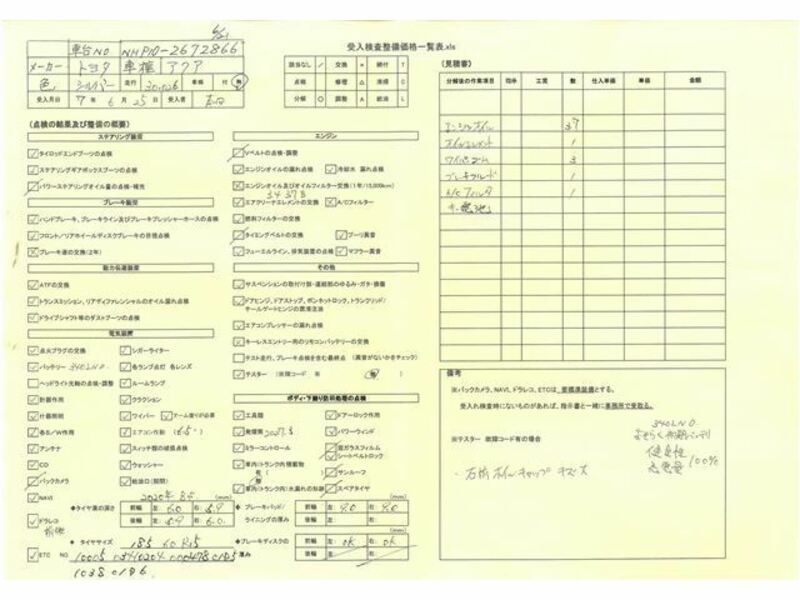 6/21
車台NO NHP10-2672866
メーカー トヨタ 車種 アクア
色 シルバー 走行 30,026 車検 付 無
受入月日 7年 6月 25日 受入者
受入検査整備価格一覧表.xls
該当なし ／ 交換 × 締付 T
点検 修理 △ 清掃 C
分解 ○ 調整 A 給油 L
(見積書)
分解後の作業項目 指示 工賃 数 仕入単価 単価 金額
エンジンオイル 3.7
オイルエレメント 1
ワイパーゴム 3
ブレーキフルード 1
A/Cフィルタ 1
キー電池
(点検の結果及び整備の概要)
ステアリング装置
タイロッドエンドブーツの点検
ステアリングギアボックスブーツの点検
パワーステアリングオイル量の点検・補充
ブレーキ装置
ハンドブレーキ、ブレーキライン及びブレーキプレッシャーホースの点検
フロント/リアホイールディスクブレーキの目視点検
ブレーキ液の交換(2年)
動力伝達装置
ATFの交換
トランスミッション、リアディファレンシャルのオイル漏れ点検
ドライブシャフト等のダストブーツの点検
電気装置
点火プラグの交換 シガーライター
バッテリー 340LN0 各ランプ点灯 各レンズ
ヘッドライト光軸の点検・調整 ルームランプ
計器作用 クラクション
什器照明 ワイパー アーム塗りが必要
各S/W作用 エアコン作動 (6.5°)
アンテナ スイッチ類の破損点検
CD ウォッシャー
バックカメラ 給油口(開閉)
NAVI
ドラレコ 前後
ETC NO. 10005 03410204 00047801P5
1038 01P6
エンジン
Vベルトの点検・調整
エンジンオイルの漏れ点検 冷却水 漏れ点検
エンジンオイル及びオイルフィルター交換(1年/15,000km)
エアクリーナエレメントの交換 A/Cフィルター
燃料フィルターの交換
タイミングベルトの交換 プーリ異音
フューエルライン、排気装置の点検 マフラー異音
その他
サスペンションの取付け部・連結部のゆるみ・ガタ・損傷
ドアヒンジ、ドアストップ、ボンネットロック、トランクリッド/
テールゲートヒンジの潤滑注油
エアコンプレッサーの漏れ点検
キーレスエントリー用のリモコンバッテリーの交換
テスト走行、ブレーキ点検を含む最終点 (異音がないかをチェック)
テスター (故障コード 有 無 )
ボディ・下廻り防錆処理の点検
工具類 ドアーロック作用
発煙筒 2027.3 パワーウィンド
ミラーコントロール 窓ガラスフィルム
シートベルトロック
車内/トランク内積載物
有( ) サンルーフ
無
車内(トランク内)水漏れの形跡 スペアタイヤ
2020年 8.5 (mm)
◆タイヤ溝の深さ 前輪 左: 6.0 右: 5.9
後輪 左: 5.9 右: 6.0
◆タイヤサイズ 185 60 R15
(mm)
◆ブレーキパッド/ライニングの厚み 前輪 左: 9.0 右: 9.0
後輪 左: 右:
(mm)
◆ブレーキディスクの厚み 前輪 左: OK 右: OK
後輪 左: 右:
備考
※バックカメラ、NAVI、ドラレコ、ETCは、要標準装備とする。
受入れ検査時にないものがあれば、指示書と一緒に事務所で受取る。
※テスター 故障コード有の場合
340LN0
おそらく初期バッテリ
健全性
充電量 100%
・右前ホイルキャップ キズ大